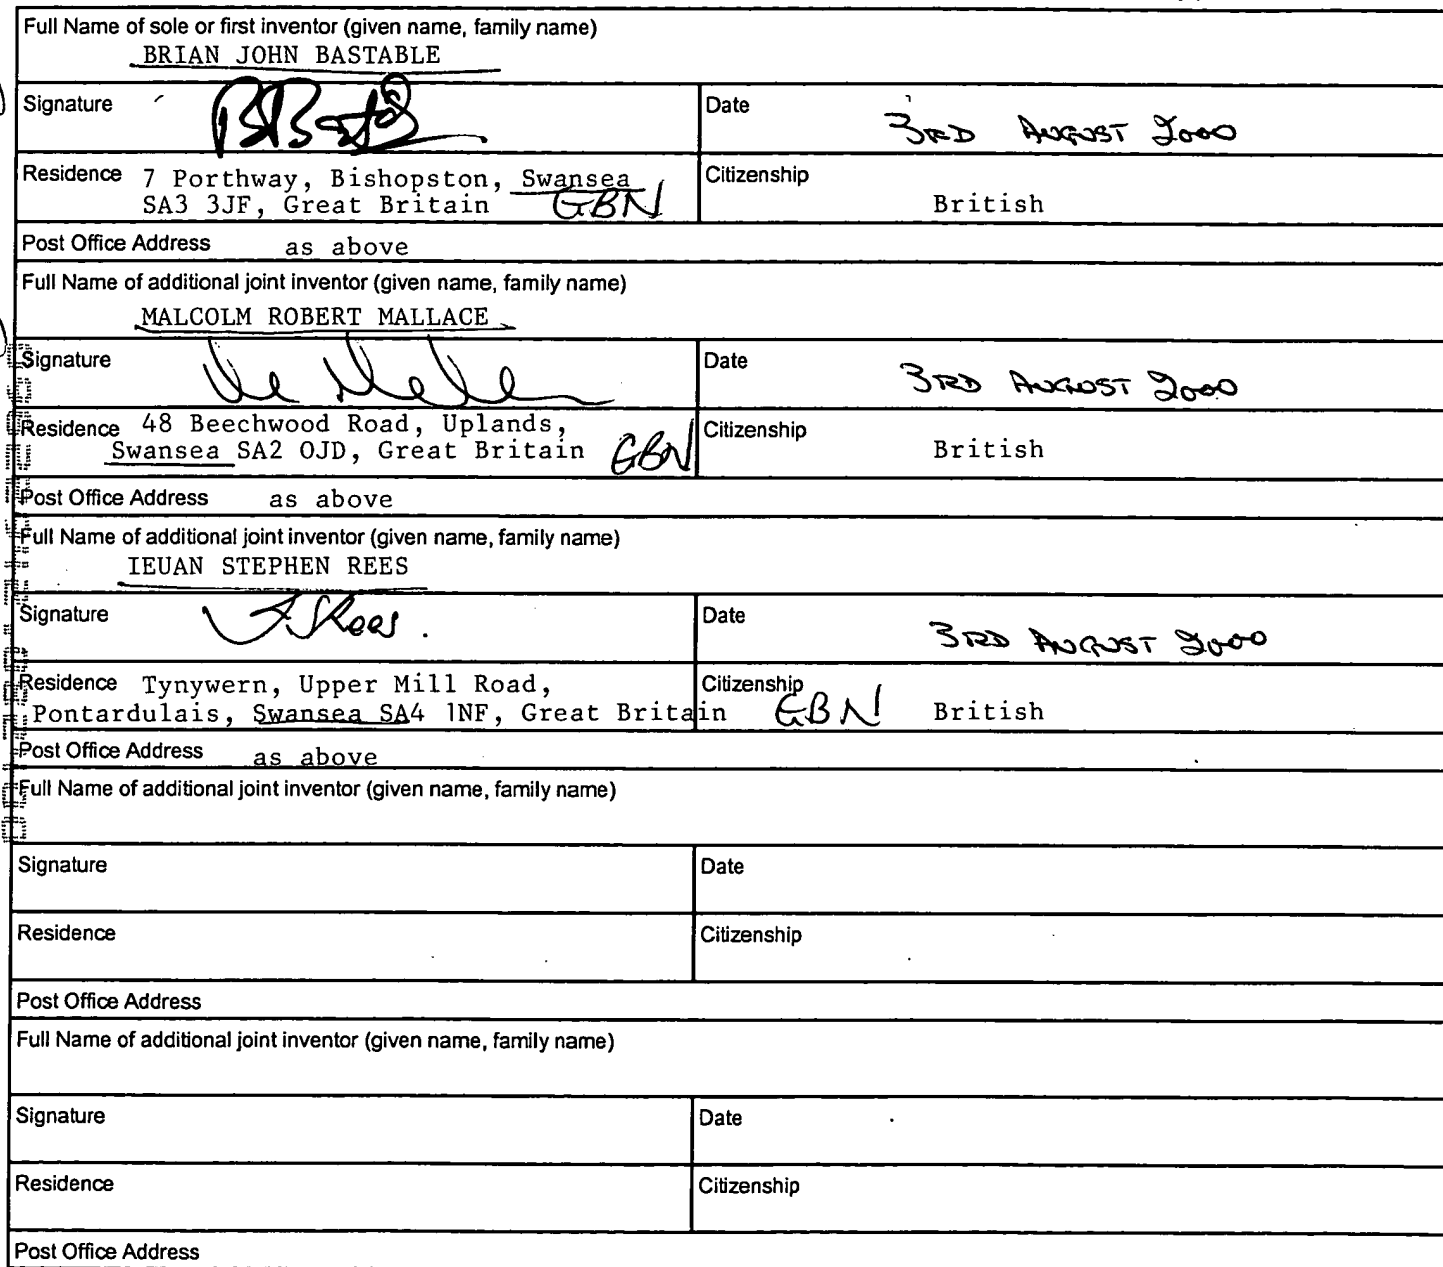 Full Name of sole or first inventor (given name, family name)
BRIAN JOHN BASTABLE
Signature
Date 3RD AUGUST 2000
Residence 7 Porthway, Bishopston, Swansea
SA3 3JF, Great Britain GBN
Citizenship
British
Post Office Address as above
Full Name of additional joint inventor (given name, family name)
MALCOLM ROBERT MALLACE
Signature
Date 3RD AUGUST 2000
Residence 48 Beechwood Road, Uplands,
Swansea SA2 OJD, Great Britain GBN
Citizenship
British
Post Office Address as above
Full Name of additional joint inventor (given name, family name)
IEUAN STEPHEN REES
Signature I.S Rees.
Date 3RD AUGUST 2000
Residence Tynywern, Upper Mill Road,
Pontardulais, Swansea SA4 1NF, Great Britain GBN
Citizenship
British
Post Office Address as above
Full Name of additional joint inventor (given name, family name)
Signature
Date
Residence
Citizenship
Post Office Address
Full Name of additional joint inventor (given name, family name)
Signature
Date
Residence
Citizenship
Post Office Address